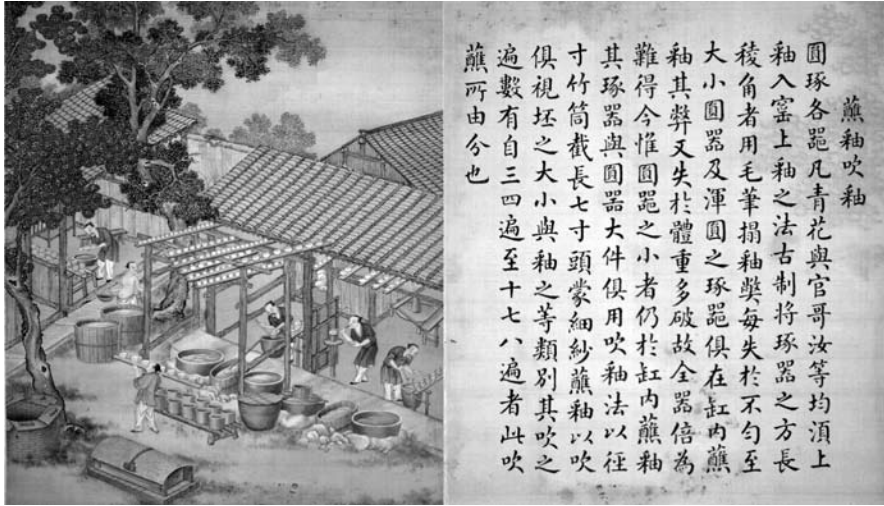 蘸釉吹釉
圓琢各器凡青花與官哥汝等均湏上
釉入窰上釉之法古制將琢器之方長
稜角者用毛筆搨釉獘每失於不勻至
大小圓器及渾圓之琢器俱在缸內蘸
釉其弊又失於體重多破故全器倍為
難得今惟圓器之小者仍於缸內蘸釉
其琢器與圓器大件俱用吹釉法以徑
寸竹筒截長七寸頭蒙細紗蘸釉以吹
俱視坯之大小與釉之等類別其吹之
遍數有自三四遍至十七八遍者此吹
蘸所由分也